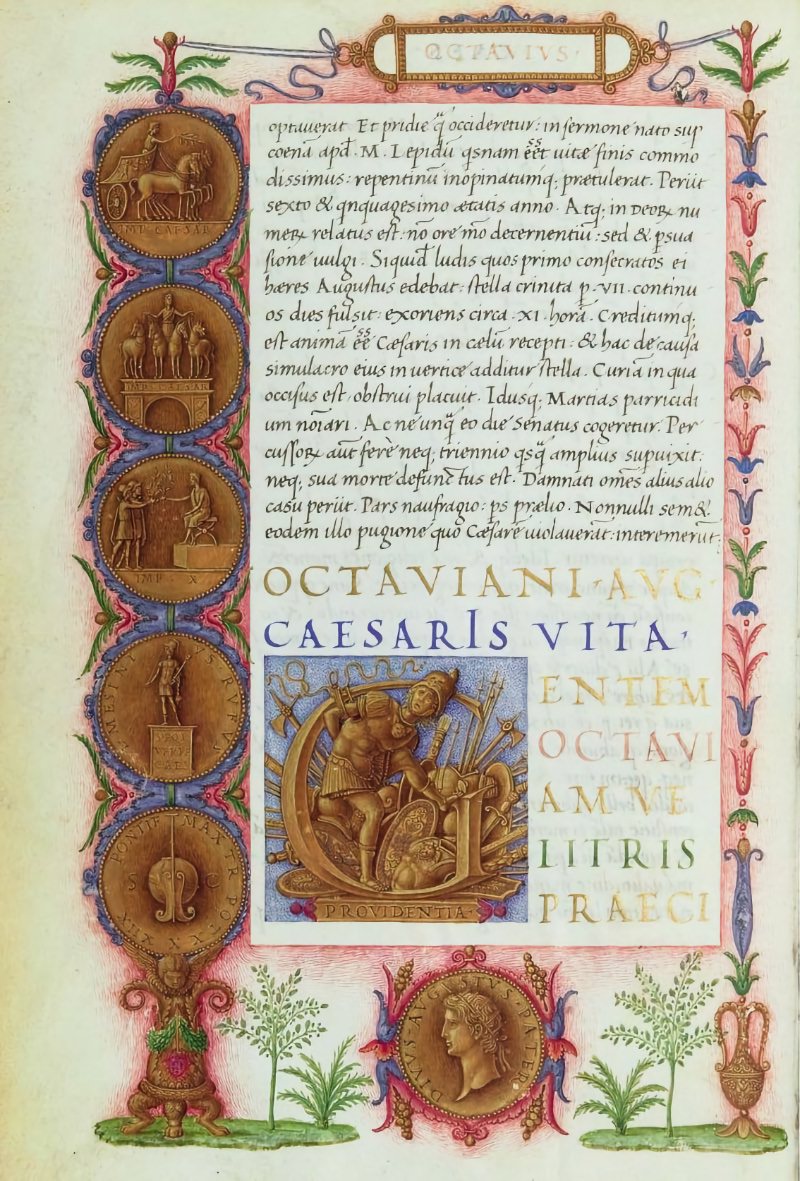 OCTAVIVS
optauerat. Et pridie q̃ occideretur: in sermone nato sup
coenã apd̃ M. Lepidũ qsnam eẽt uitæ finis commo
dissimus: repentinũ inopinatumq; prætulerat. Periit
sexto & qnquagesimo ætatis anno. Atq; in Deoꝝ nu
meꝝ relatus est: nõ ore mõ decernentiũ: sed & psua
sione uulgi. Siquid̃ ludis quos primo consecratos ei
hæres Augustus edebat: stella crinita p .VII. continu
os dies fulsit: exoriens circa .XI. horã. Creditumq;
est animã eẽ Cæsaris in cælũ recepti: & hac de causa
simulacro eius in uertice additur stella. Curiã in qua
occisus est, obstrui placuit. Idusq; Martias parricidi
um noĩari. Ac ne unq̃ eo die Senatus cogeretur. Per
cussoꝝ aut̃ ferè neq; triennio qsq̃ amplius supuixit.
neq; sua morte defunctus est. Damnati om̃es alius alio
casu periit. Pars naufragio: ps prælio. Nonnulli sem&
eodem illo pugione quo Cæsarẽ uiolauerãt: interemerũt:
OCTAVIANI · AVG ·
CAESARIS VITA ·
GENTEM
OCTAVI
AM VE
LITRIS
PRAECI
PROVIDENTIA
IMP · CAESAR
IMP · CAESAR
IMP · X
RVFVS
PONTIF MAX TR POT
S C
DIVVS · AVGVSTVS · PATER